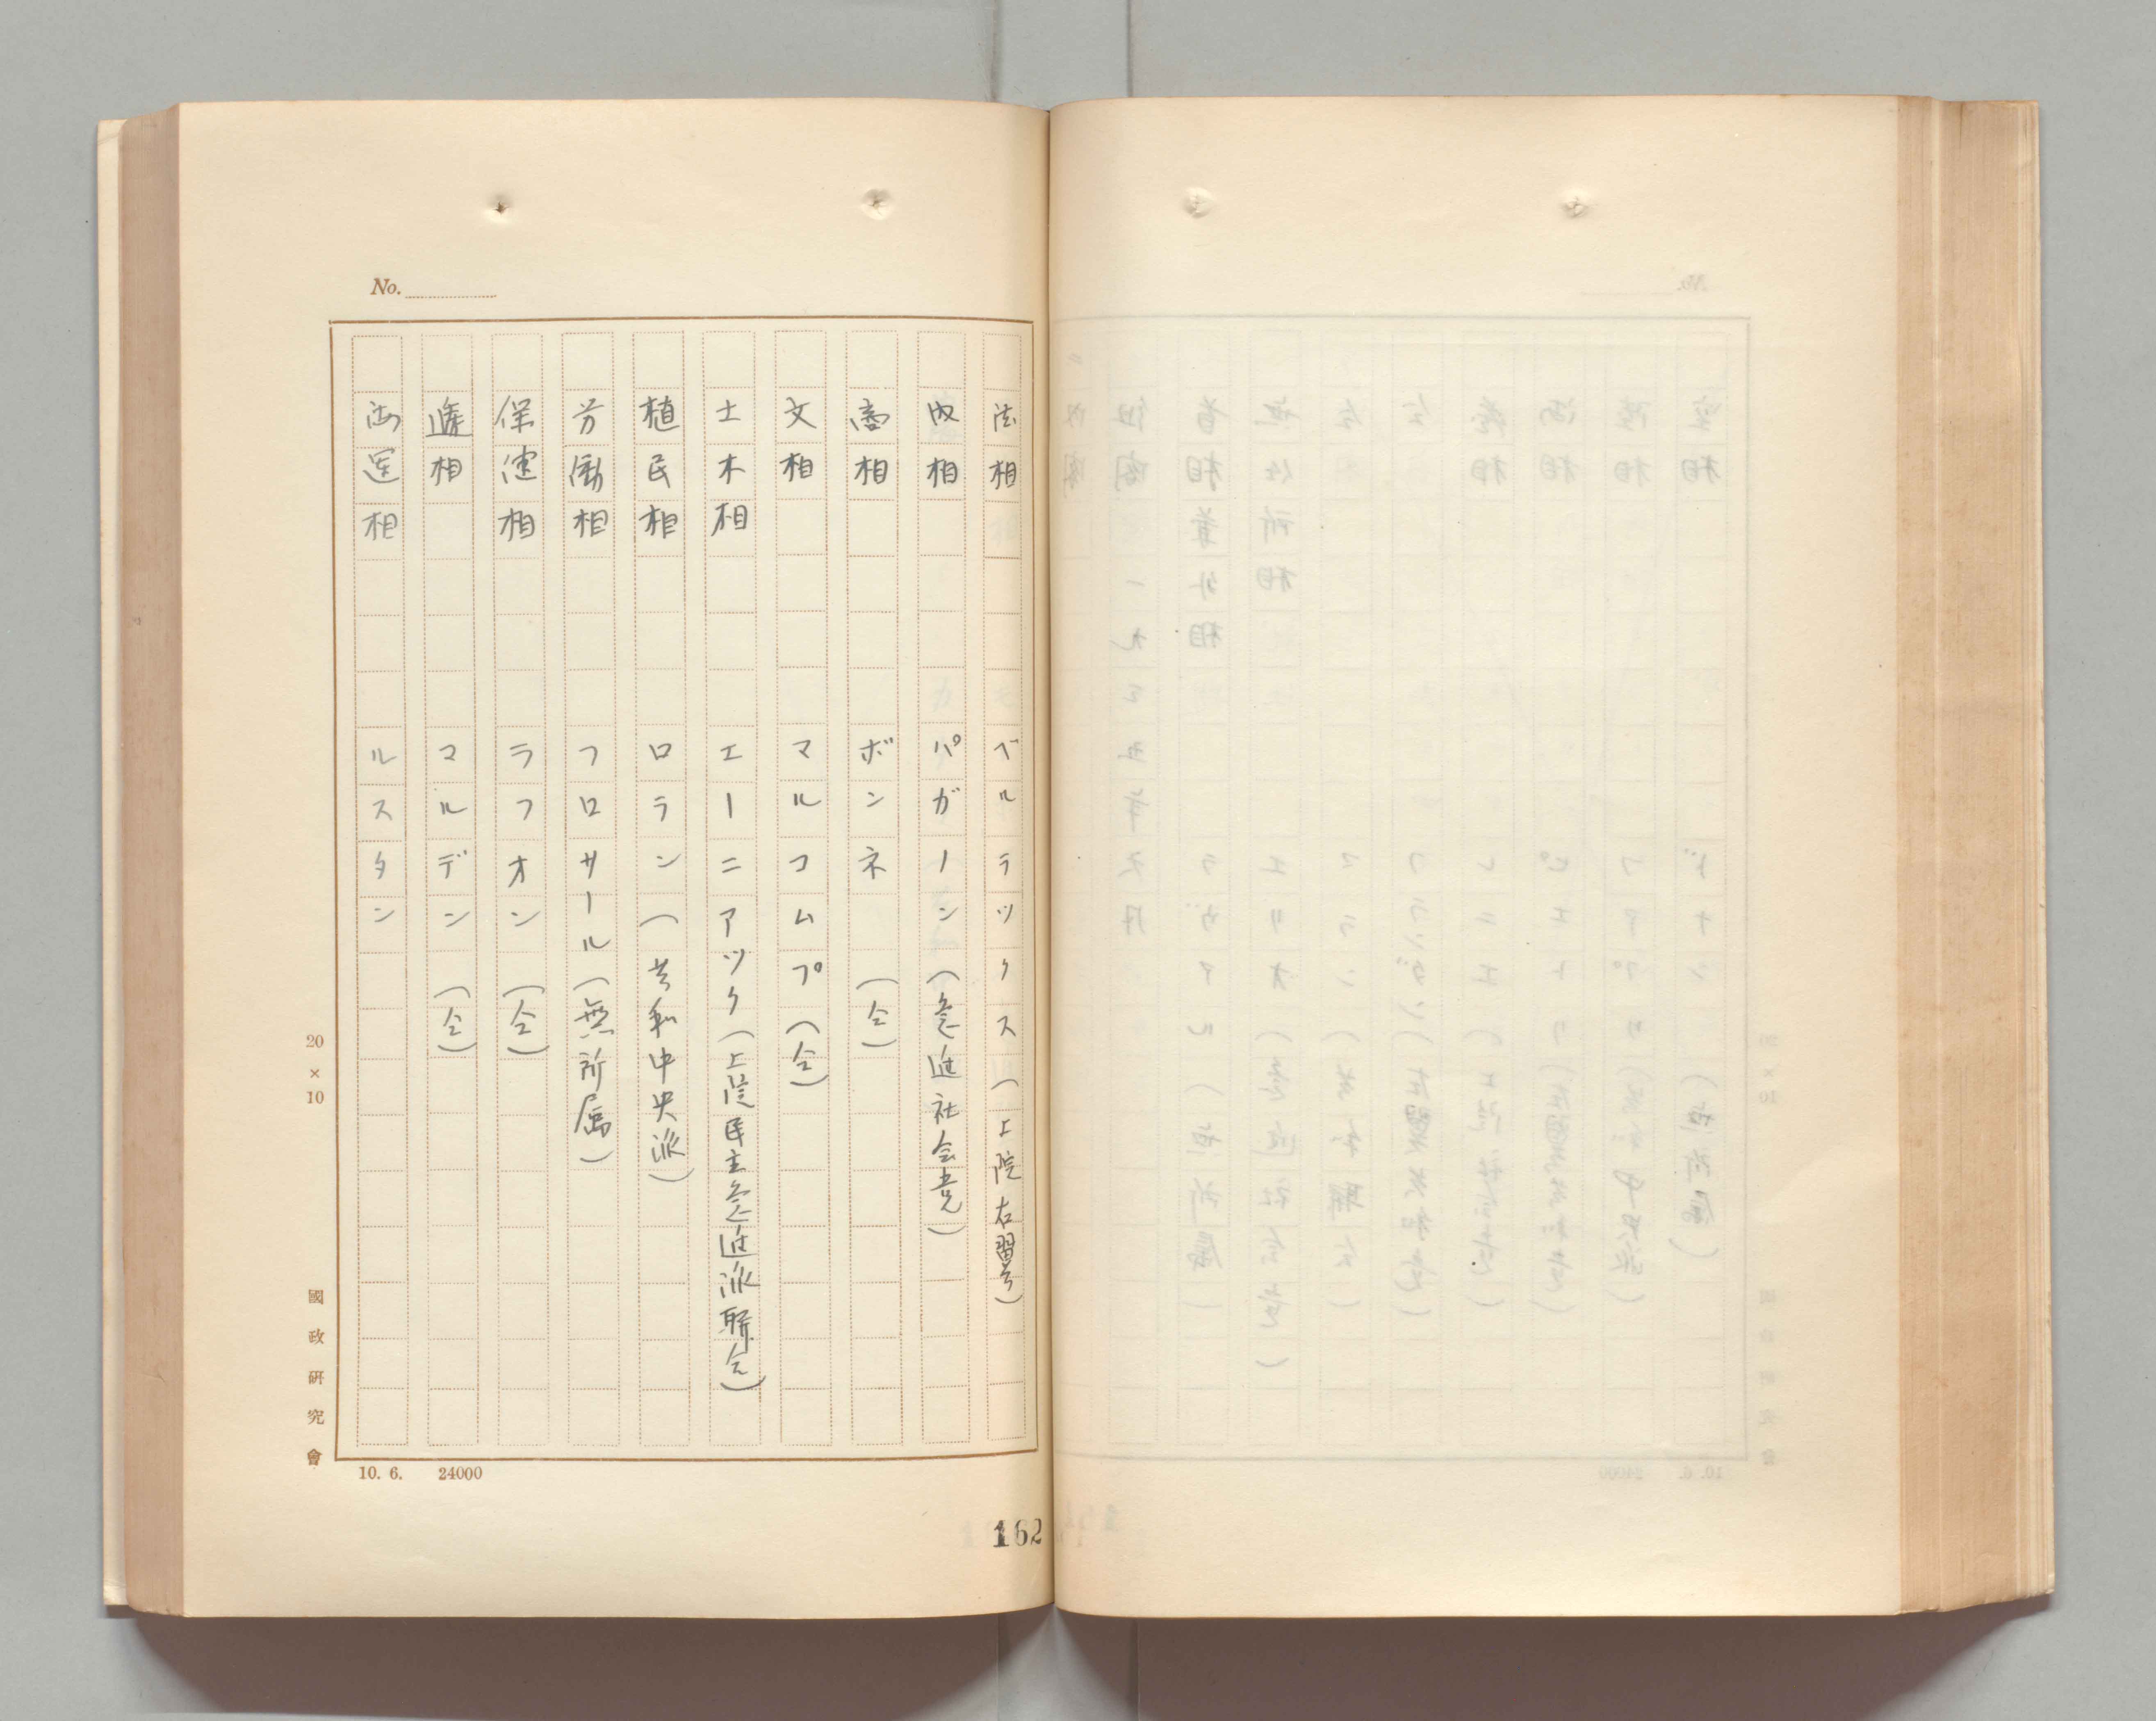 No.
法相 ベルラツクス(上院右翼)
内相 パガノン(急進社会党)
商相 ボンネ (仝)
文相 マルコムプ(仝)
土木相 エーニアツク(上院民主急進派聯合)
植民相 ロラン(共和中央派)
労働相 フロサール(無所属)
保健相 ラフオン (仝)
逓相 マルデン (仝)
海運相 ルスタン
20×10
國政研究會
10. 6. 24000
162